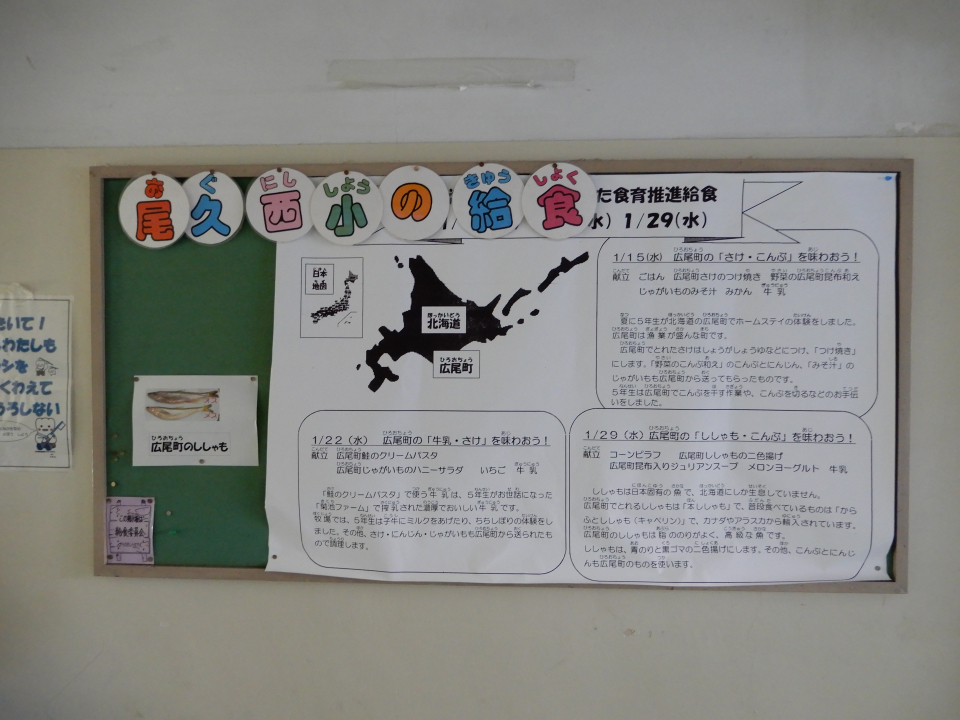 尾久西小の給食
た食育推進給食
水) 1/29(水)
日本
地図
北海道
広尾町
広尾町のししゃも
1/15(水) 広尾町の「さけ・こんぶ」を味わおう！
献立 ごはん 広尾町さけのつけ焼き 野菜の広尾町昆布和え
じゃがいものみそ汁 みかん 牛乳
夏に5年生が北海道の広尾町でホームステイの体験をしました。
広尾町は漁業が盛んな町です。
広尾町でとれたさけはしょうがしょうゆなどにつけ、「つけ焼き」
にします。「野菜のこんぶ和え」のこんぶとにんじん、「みそ汁」の
じゃがいもも広尾町から送ってもらったものです。
5年生は広尾町でこんぶを干す作業や、こんぶを切るなどのお手伝
いをしました。
1/22 (水) 広尾町の「牛乳・さけ」を味わおう！
献立 広尾町鮭のクリームパスタ
広尾町じゃがいものハニーサラダ いちご 牛乳
「鮭のクリームパスタ」で使う牛乳は、5年生がお世話になった
「菊池ファーム」で搾乳された濃厚でおいしい牛乳です。
牧場では、5年生は子牛にミルクをあげたり、ちちしぼりの体験をし
ました。その他、さけ・にんじん・じゃがいもも広尾町から送られたも
ので調理します。
1/29 (水) 広尾町の「ししゃも・こんぶ」を味わおう！
献立 コーンピラフ 広尾町ししゃもの二色揚げ
広尾町昆布入りジュリアンスープ メロンヨーグルト 牛乳
ししゃもは日本固有の魚で、北海道にしか生息していません。
広尾町でとれるししゃもは「本ししゃも」で、普段食べているものは「から
ふとししゃも（キャペリン）」で、カナダやアラスカから輸入されています。
広尾町のししゃもは脂ののりがよく、高級な魚です。
ししゃもは、青のりと黒ゴマの二色揚げにします。その他、こんぶとにんじ
んも広尾町のものを使います。
給食委員会
わたしも
くわえて
うろしない